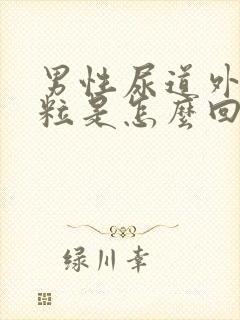 男性尿道外
粒是怎麼回
绿川幸